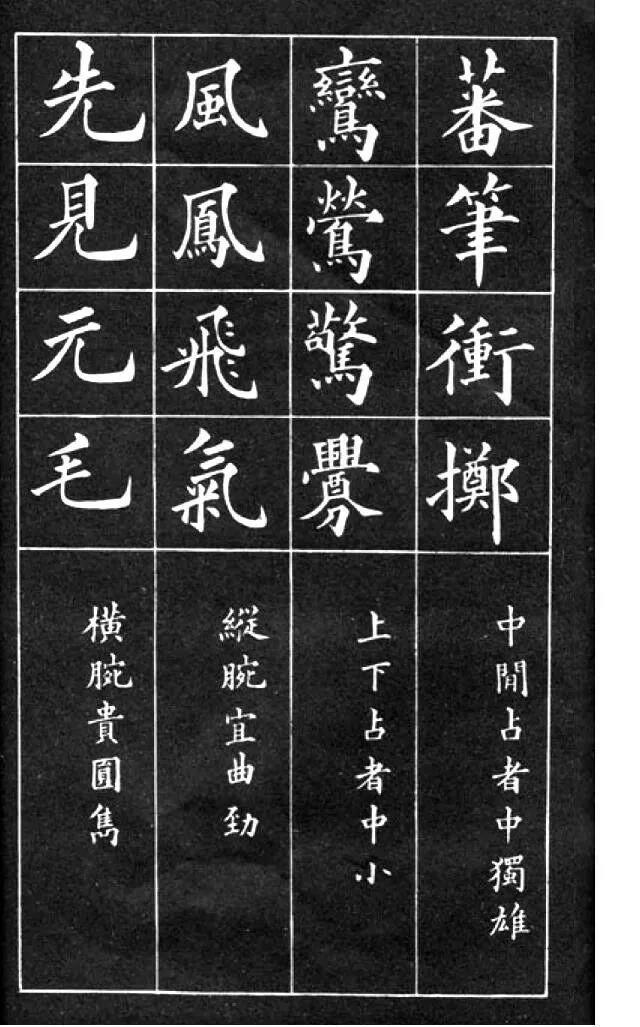 蕃筆衝擲
中閒占者中獨雄
鸞鶯驚爨
上下占者中小
風鳳飛氣
縱腕宜曲勁
先見元毛
橫腕貴圓雋